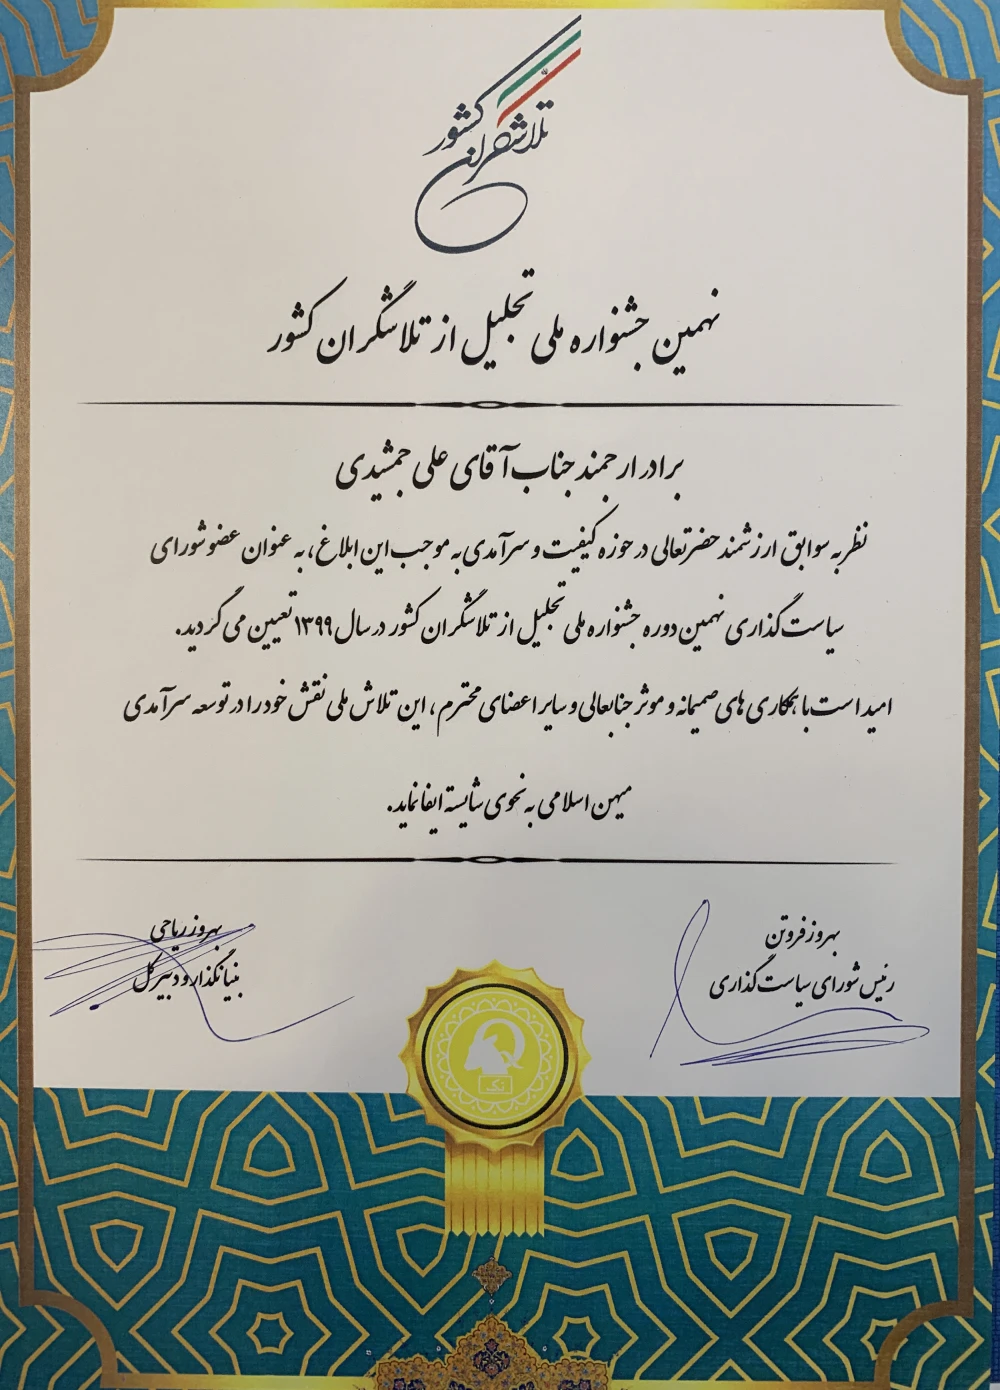 تلاشگران کشور
نهمین جشنواره ملی تجلیل از تلاشگران کشور
برادر ارجمند جناب آقای علی جمشیدی
نظر به سوابق ارزشمند حضرتعالی در حوزه کیفیت و سرآمدی به موجب این ابلاغ، به عنوان عضو شورای
سیاست گذاری نهمین دوره جشنواره ملی تجلیل از تلاشگران کشور در سال ۱۳۹۹ تعیین می گردید.
امید است با همکاری های صمیمانه و موثر جنابعالی و سایر اعضای محترم، این تلاش ملی نقش خود را در توسعه سرآمدی
میهن اسلامی به نحوی شایسته ایفا نماید.
بهروز فروتن
رئیس شورای سیاست گذاری
بهروز ریاحی
بنیانگذار و دبیر کل